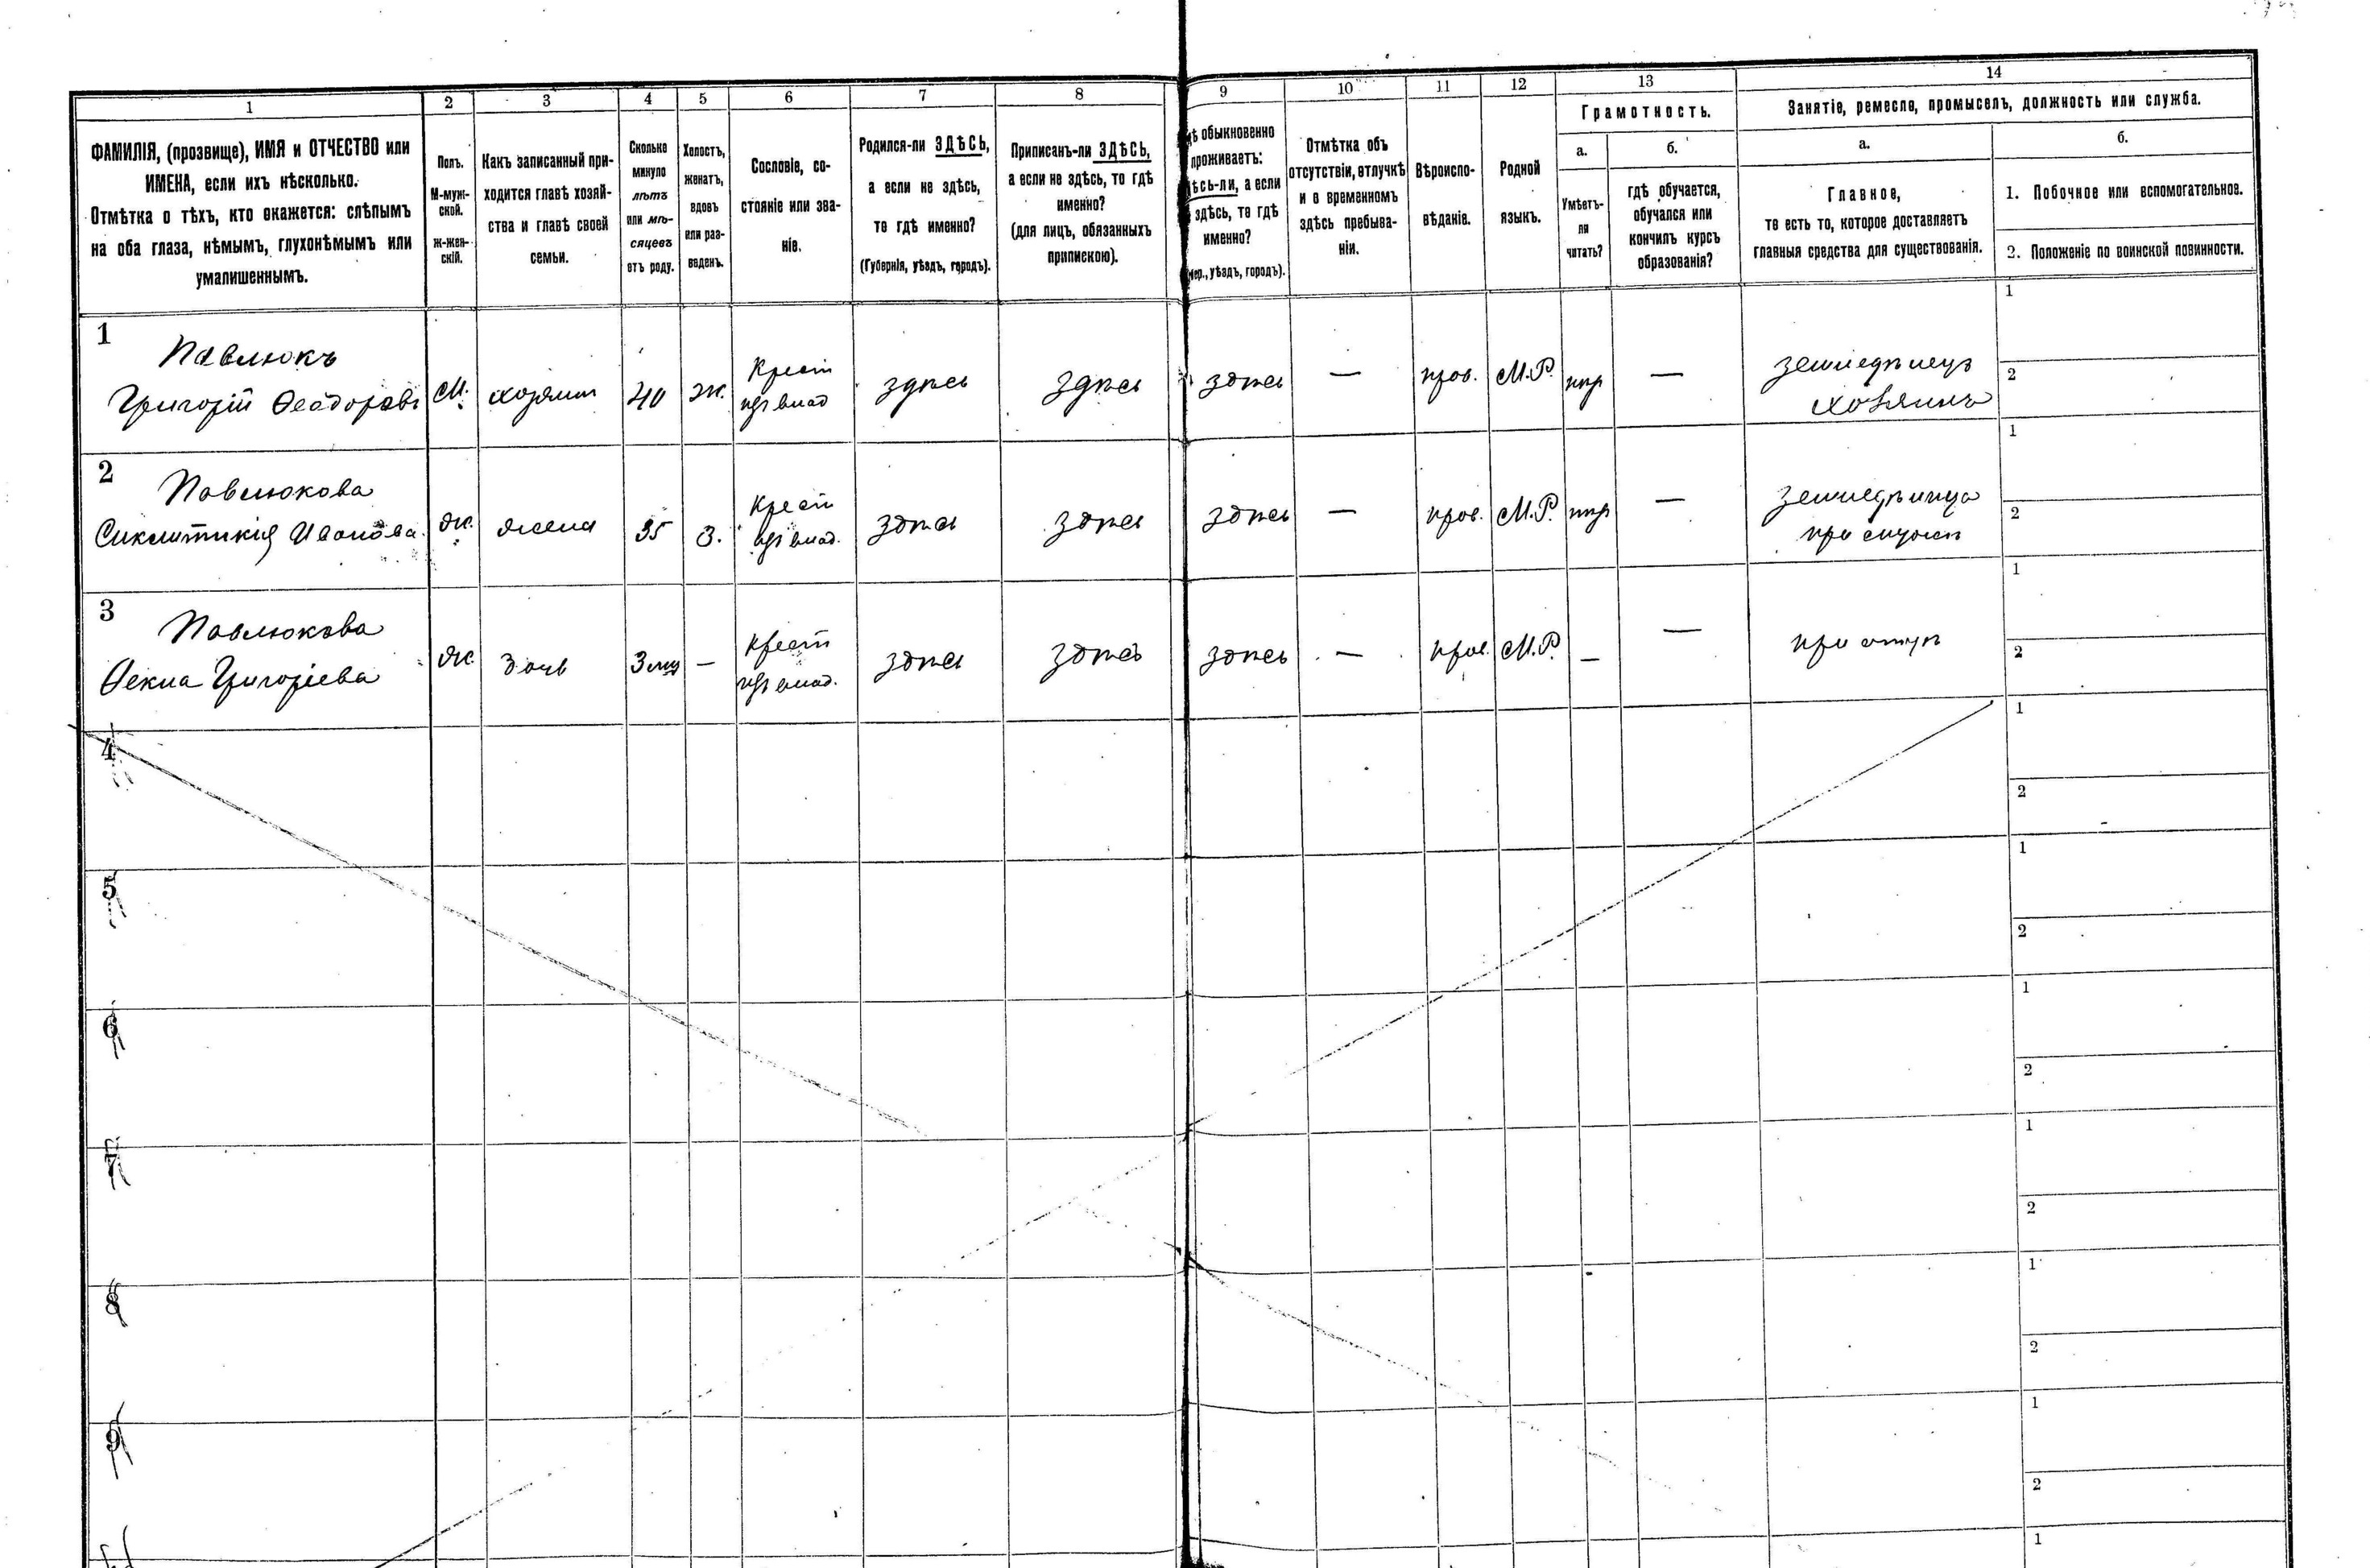 1
2
3
4
5
6
7
8
9
10
11
12
13
14
ФАМИЛІЯ, (прозвище), ИМЯ и ОТЧЕСТВО или
ИМЕНА, если ихъ нѣсколько.
Отмѣтка о тѣхъ, кто окажется: слѣпымъ
на оба глаза, нѣмымъ, глухонѣмымъ или
умалишеннымъ.
Полъ.
М-муж-
ской.
ж-жен-
скій.
Какъ записанный при-
ходится главѣ хозяй-
ства и главѣ своей
семьи.
Сколько
минуло
лѣтъ
или мѣ-
сяцевъ
отъ роду.
Холостъ,
женатъ,
вдовъ
или раз-
веденъ.
Сословіе, со-
стояніе или зва-
ніе.
Родился-ли ЗДѢСЬ,
а если не здѣсь,
то гдѣ именно?
(Губернія, уѣздъ, городъ).
Приписанъ-ли ЗДѢСЬ,
а если не здѣсь, то гдѣ
именно?
(для лицъ, обязанныхъ
припискою).
обыкновенно
проживаетъ:
а если
здѣсь, то гдѣ
именно?
уѣздъ, городъ).
Отмѣтка объ
отсутствіи, отлучкѣ
и о временномъ
здѣсь пребыва-
ніи.
Вѣроиспо-
вѣданіе.
Родной
языкъ.
Грамотность.
а.
Умѣетъ-
ли
читать?
б.
гдѣ обучается,
обучался или
кончилъ курсъ
образованія?
Занятіе, ремесло, промыселъ, должность или служба.
а.
Главное,
то есть то, которое доставляетъ
главныя средства для существованія.
б.
1. Побочное или вспомогательное.
2. Положеніе по воинской повинности.
1
Павлюкъ
Григорій Ѳеодоровъ
М.
хозяинъ
40
Ж.
Крест
здѣсь
здѣсь
здѣсь
—
прав.
М.Р.
—
земледѣлецъ
хозяинъ
1
2
2
Павлюкова
Ивонова
Ж.
жена
35
З.
Крест
здѣсь
здѣсь
здѣсь
—
прав.
М.Р.
—
при мужѣ
1
2
3
Павлюкова
Ѳекла Григоріева
Ж.
дочь
—
Крест
здѣсь
здѣсь
здѣсь
—
прав.
М.Р.
—
—
при отцѣ
1
2
4
1
2
5
1
2
6
1
2
7
1
2
8
1
2
9
1
2
1